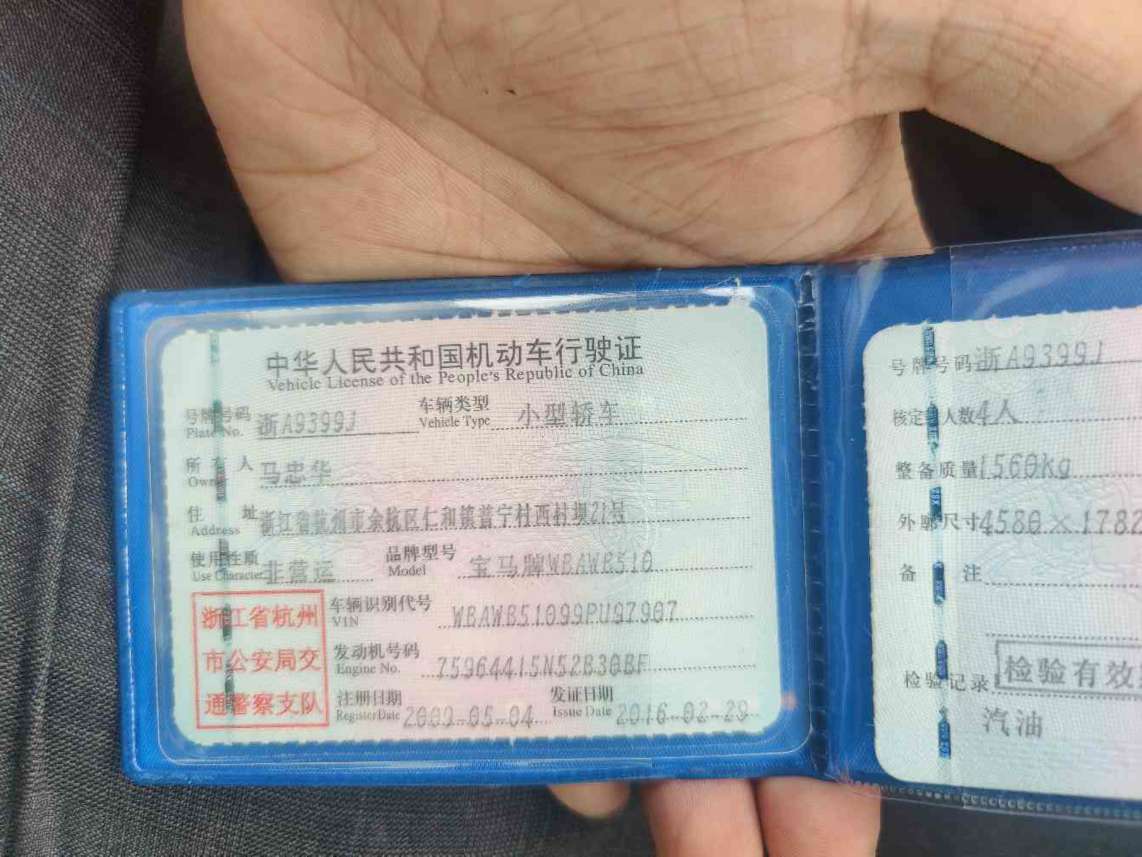 中华人民共和国机动车行驶证
Vehicle License of the People's Republic of China
号牌号码 浙A9399J 车辆类型 小型轿车
Plate No. Vehicle Type
所有人 马忠华
Owner
住址 浙江省杭州市余杭区仁和镇普宁村西村坝21号
Address
使用性质 非营运 品牌型号 宝马牌WBAWB510
Use Character Model
浙江省杭州
市公安局交
通警察支队
车辆识别代号 WBAWB51099PU97907
VIN
发动机号码 75964415N52B30BF
Engine No.
注册日期 2009-05-04 发证日期 2016-02-29
Register Date Issue Date
号牌号码 浙A9399J
核定 人数 4人
整备质量 1560kg
外廓尺寸 4580×1782
备注
检验记录 检验有效
汽油